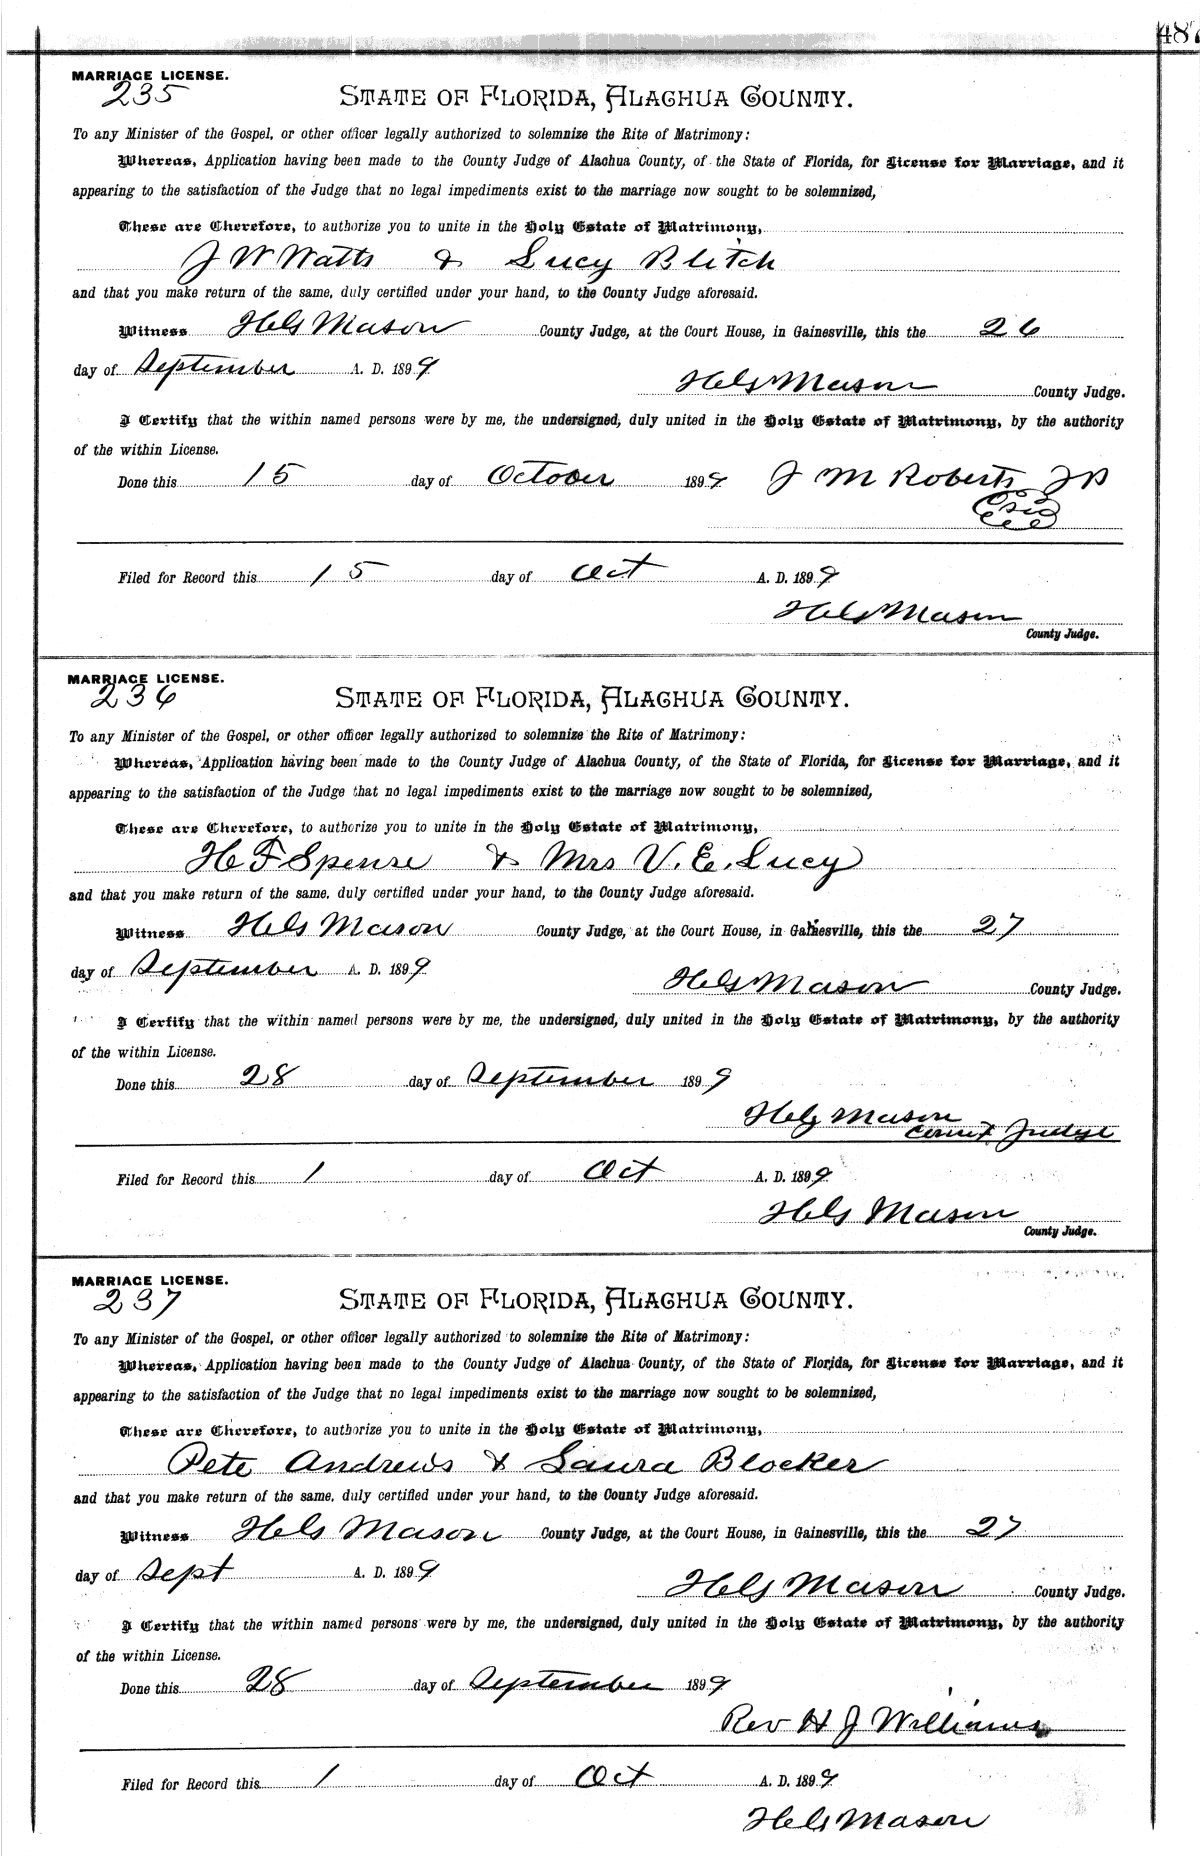 487
MARRIAGE LICENSE.
235
STATE OF FLORIDA, ALACHUA COUNTY.
To any Minister of the Gospel, or other officer legally authorized to solemnize the Rite of Matrimony:
Whereas, Application having been made to the County Judge of Alachua County, of the State of Florida, for License for Marriage, and it
appearing to the satisfaction of the Judge that no legal impediments exist to the marriage now sought to be solemnized,
These are Therefore, to authorize you to unite in the Holy Estate of Matrimony,
J W Watts & Lucy Blitch
and that you make return of the same, duly certified under your hand, to the County Judge aforesaid.
Witness H G Mason County Judge, at the Court House, in Gainesville, this the 26
day of September A. D. 1899
H G Mason County Judge.
I Certify that the within named persons were by me, the undersigned, duly united in the Holy Estate of Matrimony, by the authority
of the within License.
Done this 15 day of October 1899 J M Roberts J P
Filed for Record this 15 day of Oct A. D. 1899
H G Mason
County Judge.
MARRIAGE LICENSE.
236
STATE OF FLORIDA, ALACHUA COUNTY.
To any Minister of the Gospel, or other officer legally authorized to solemnize the Rite of Matrimony:
Whereas, Application having been made to the County Judge of Alachua County, of the State of Florida, for License for Marriage, and it
appearing to the satisfaction of the Judge that no legal impediments exist to the marriage now sought to be solemnized,
These are Therefore, to authorize you to unite in the Holy Estate of Matrimony,
H F Spense & Mrs V. E. Lucy
and that you make return of the same, duly certified under your hand, to the County Judge aforesaid.
Witness H G Mason County Judge, at the Court House, in Gainesville, this the 27
day of September A. D. 1899
H G Mason County Judge.
I Certify that the within named persons were by me, the undersigned, duly united in the Holy Estate of Matrimony, by the authority
of the within License.
Done this 28 day of September 1899
H G Mason
Count Judge
Filed for Record this 1 day of Oct A. D. 1899
H G Mason
County Judge.
MARRIAGE LICENSE.
237
STATE OF FLORIDA, ALACHUA COUNTY.
To any Minister of the Gospel, or other officer legally authorized to solemnize the Rite of Matrimony:
Whereas, Application having been made to the County Judge of Alachua County, of the State of Florida, for License for Marriage, and it
appearing to the satisfaction of the Judge that no legal impediments exist to the marriage now sought to be solemnized,
These are Therefore, to authorize you to unite in the Holy Estate of Matrimony,
Pete Andrews & Laura Blocker
and that you make return of the same, duly certified under your hand, to the County Judge aforesaid.
Witness H G Mason County Judge, at the Court House, in Gainesville, this the 27
day of Sept A. D. 1899
H G Mason County Judge.
I Certify that the within named persons were by me, the undersigned, duly united in the Holy Estate of Matrimony, by the authority
of the within License.
Done this 28 day of September 1899
Rev H J Williams
Filed for Record this 1 day of Oct A. D. 1899
H G Mason